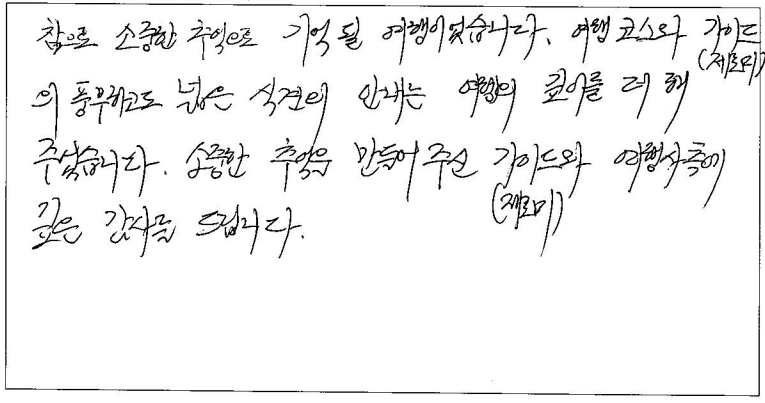 참으로 소중한 추억으로 기억될 여행이었습니다. 여행 코스와 가이드
(제로미)
의 풍부하고도 넓은 식견의 안내는 여행의 깊이를 더 해
주셨습니다. 소중한 추억을 만들어 주신 가이드와 여행사측에
(제로미)
깊은 감사를 드립니다.